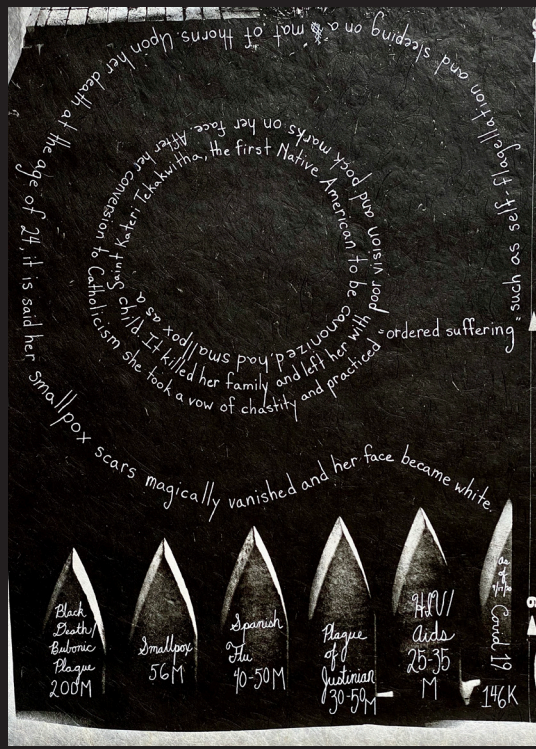 Saint Kateri Tekakwitha, the first Native American to be canonized, had smallpox as a child. It killed her family and left her with poor vision and pock marks on her face. After her conversion to Catholicism she took a vow of chastity and practiced "ordered suffering" such as self-flagellation and sleeping on a mat of thorns. Upon her death at the age of 24, it is said her smallpox scars magically vanished and her face became white.
Black
Death/
Bubonic
Plague
200M
Smallpox
56M
Spanish
Flu
40-50M
Plague
of
Justinian
30-50M
HIV/
Aids
25-35
M
as of
Covid 19
146K